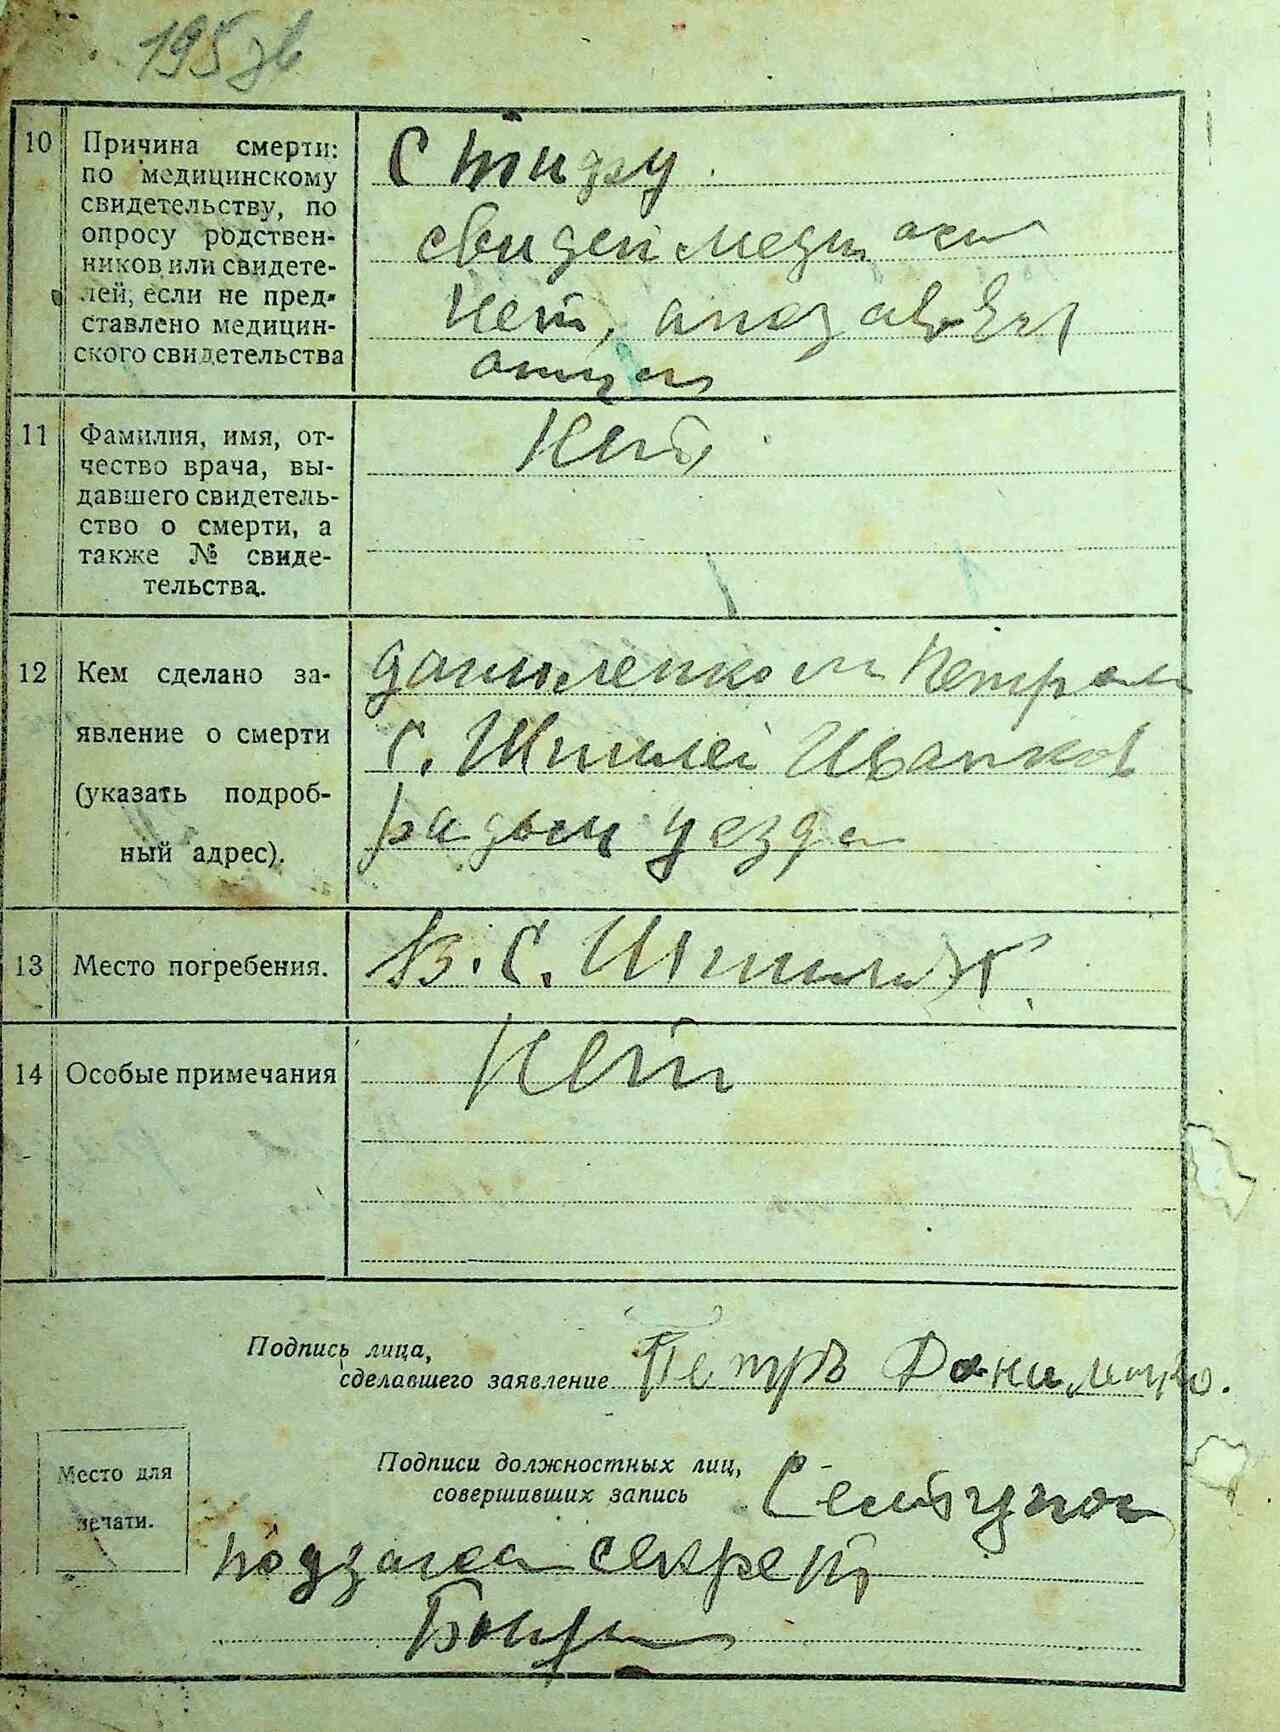 195 зв
10 Причина смерти:
по медицинскому
свидетельству, по
опросу родствен-
ников или свидете-
лей, если не пред-
ставлено медицин-
ского свидетельства
с
свидет медиц
Нет,
11 Фамилия, имя, от-
чество врача, вы-
давшего свидетель-
ство о смерти, а
также № свиде-
тельства.
Нет
12 Кем сделано за-
явление о смерти
(указать подроб-
ный адрес).
Даниленком Петром
с. Шпилей Иванков
уезда
13 Место погребения.
В. С. Шпилях
14 Особые примечания
Нет
Подпись лица,
сделавшего заявление
Петръ Даниленко.
Место для
печати.
Подписи должностных лиц,
совершивших запись
секрет